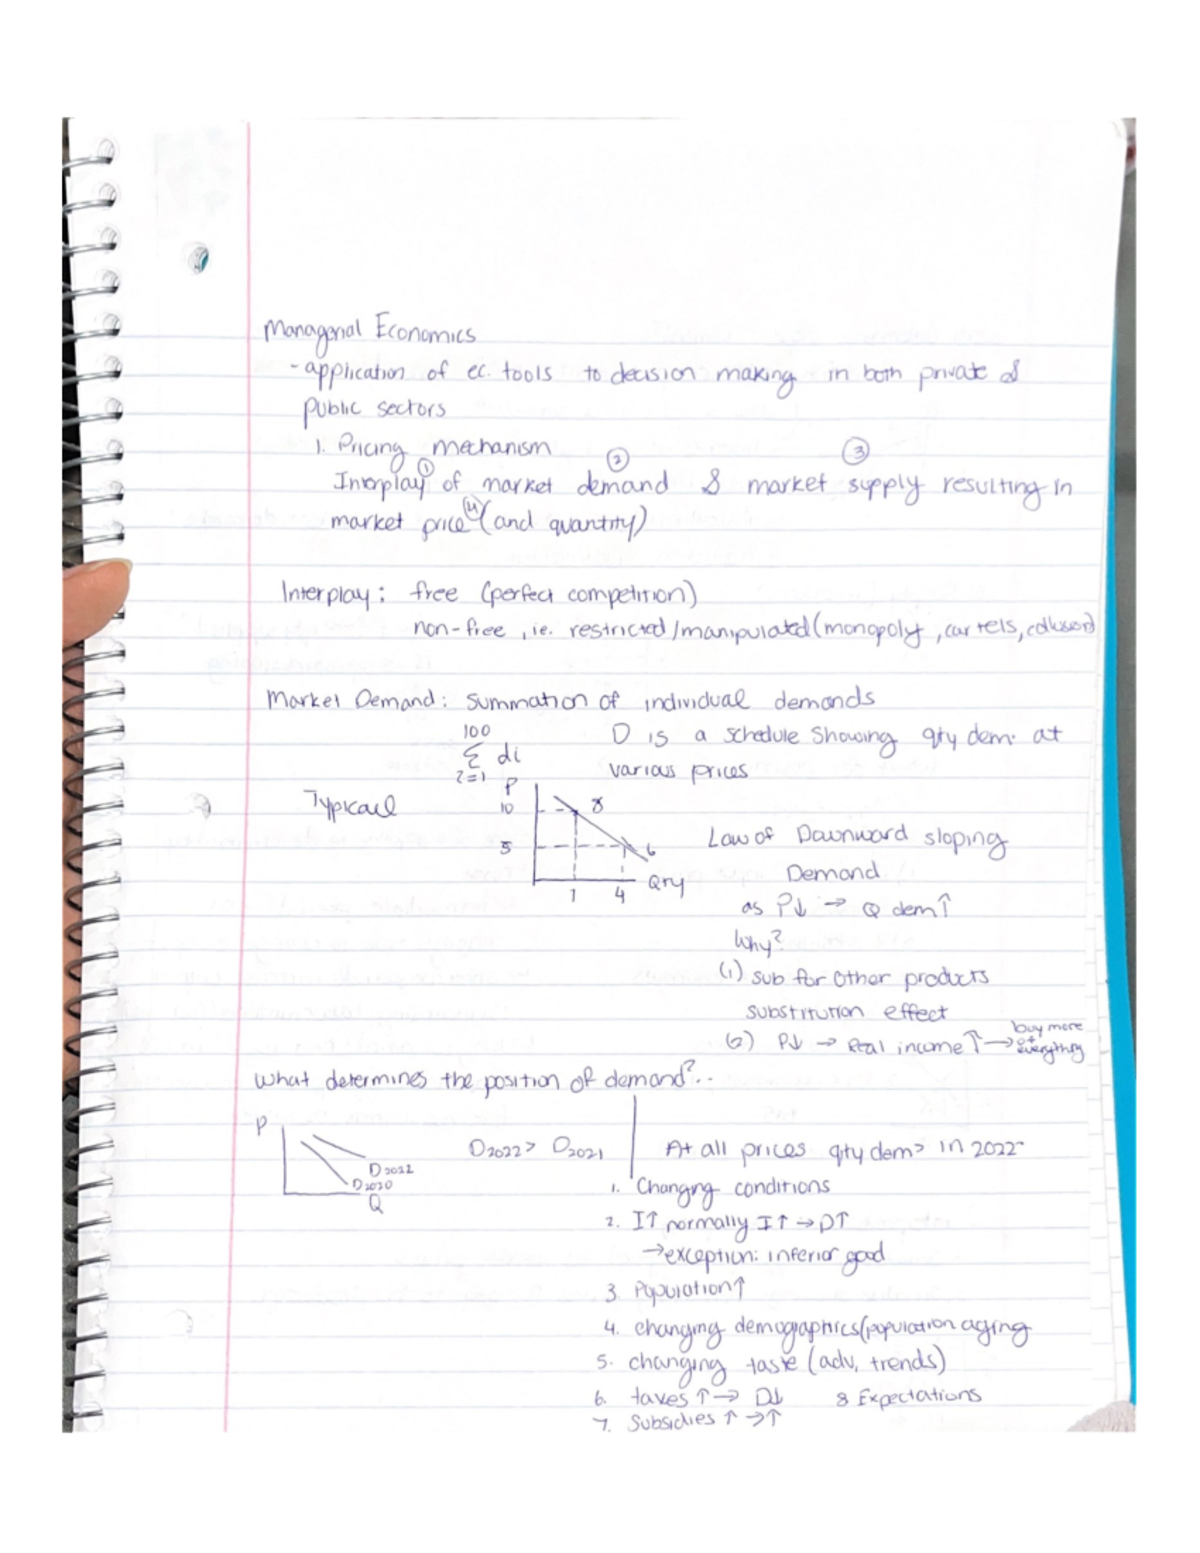 Managerial Economics
- application of ec. tools to decision making in both private &
public sectors
1. Pricing mechanism
① ② ③
Interplay of market demand & market supply resulting in
market price ④ (and quantity)
Interplay: free (perfect competition)
non-free, ie. restricted/manipulated (monopoly, cartels, collusion)
Market Demand: summation of individual demands
100
Σ di
i=1
D is a schedule showing qty dem. at
various prices
Typical
P
10
5
1 4 Qty
Law of Downward sloping
Demand
as P↓ → Q dem↑
Why?
(1) sub for other products
substitution effect
(2) P↓ → Real income ↑ → buy more of everything
What determines the position of demand?..
P
D2022
D2020
Q
D2022 > D2021
At all prices qty dem > in 2022
1. Changing conditions
2. I↑ normally I↑ → D↑
→ exception: inferior good
3. Population↑
4. changing demographics (population aging
5. changing taste (adv, trends)
6. taxes ↑ → D↓ 8 Expectations
7. Subsidies ↑ → ↑